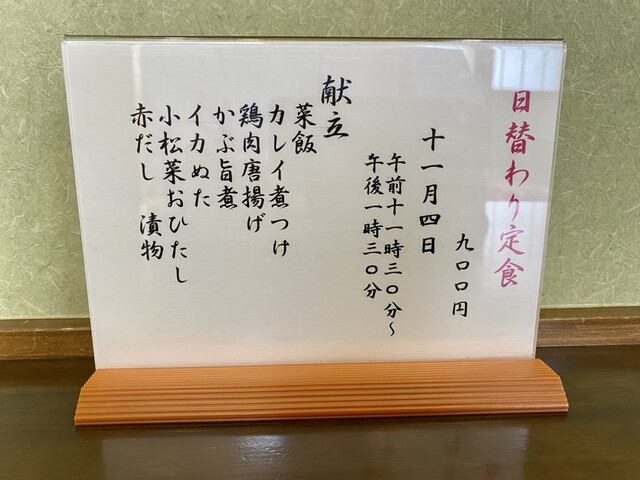 日替わり定食
九〇〇円
十一月四日
午前十一時三〇分～
午後一時三〇分
献立
菜飯
カレイ煮つけ
鶏肉唐揚げ
かぶ旨煮
イカぬた
小松菜おひたし
赤だし　漬物